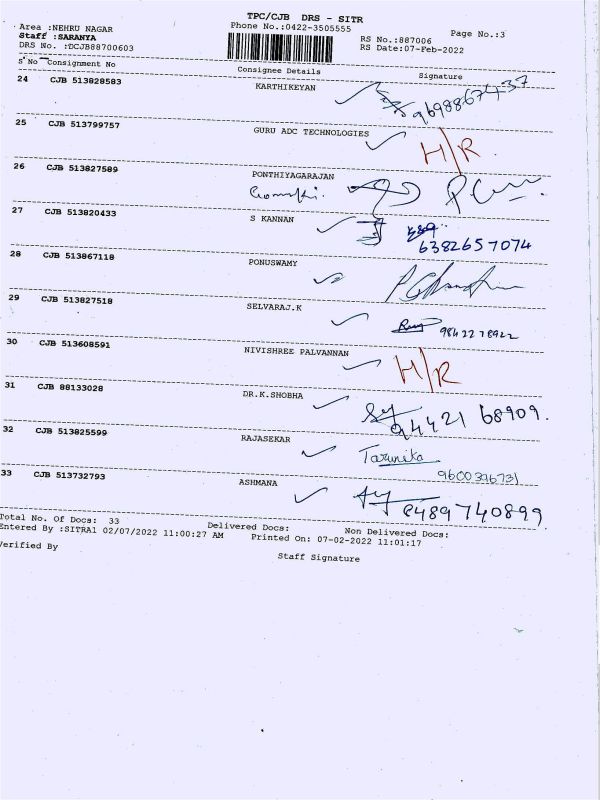 TPC/CJB DRS - SITR
Area :NEHRU NAGAR Phone No.:0422-3505555 Page No.:3
Staff :SARANYA RS No.:887006
DRS No. :DCJB88700603 RS Date:07-Feb-2022
S'No Consignment No Consignee Details Signature
24 CJB 513828583 KARTHIKEYAN 9698867437
25 CJB 513799757 GURU ADC TECHNOLOGIES H/R
26 CJB 513827589 PONTHIYAGARAJAN
27 CJB 513820433 S KANNAN 6382657074
28 CJB 513867118 PONUSWAMY
29 CJB 513827518 SELVARAJ.K 9842278922
30 CJB 513608591 NIVISHREE PALVANNAN H/R
31 CJB 88133028 DR.K.SHOBHA 94421 68909.
32 CJB 513825599 RAJASEKAR Tarunika 9600396731
33 CJB 513732793 ASHMANA 8489740899
Total No. Of Docs: 33 Delivered Docs: Non Delivered Docs:
Entered By :SITRA1 02/07/2022 11:00:27 AM Printed On: 07-02-2022 11:01:17
Verified By Staff Signature